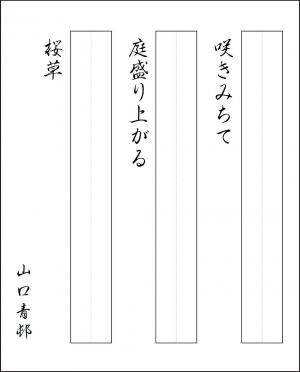 咲きみちて
庭盛り上がる
桜草
山口青邨